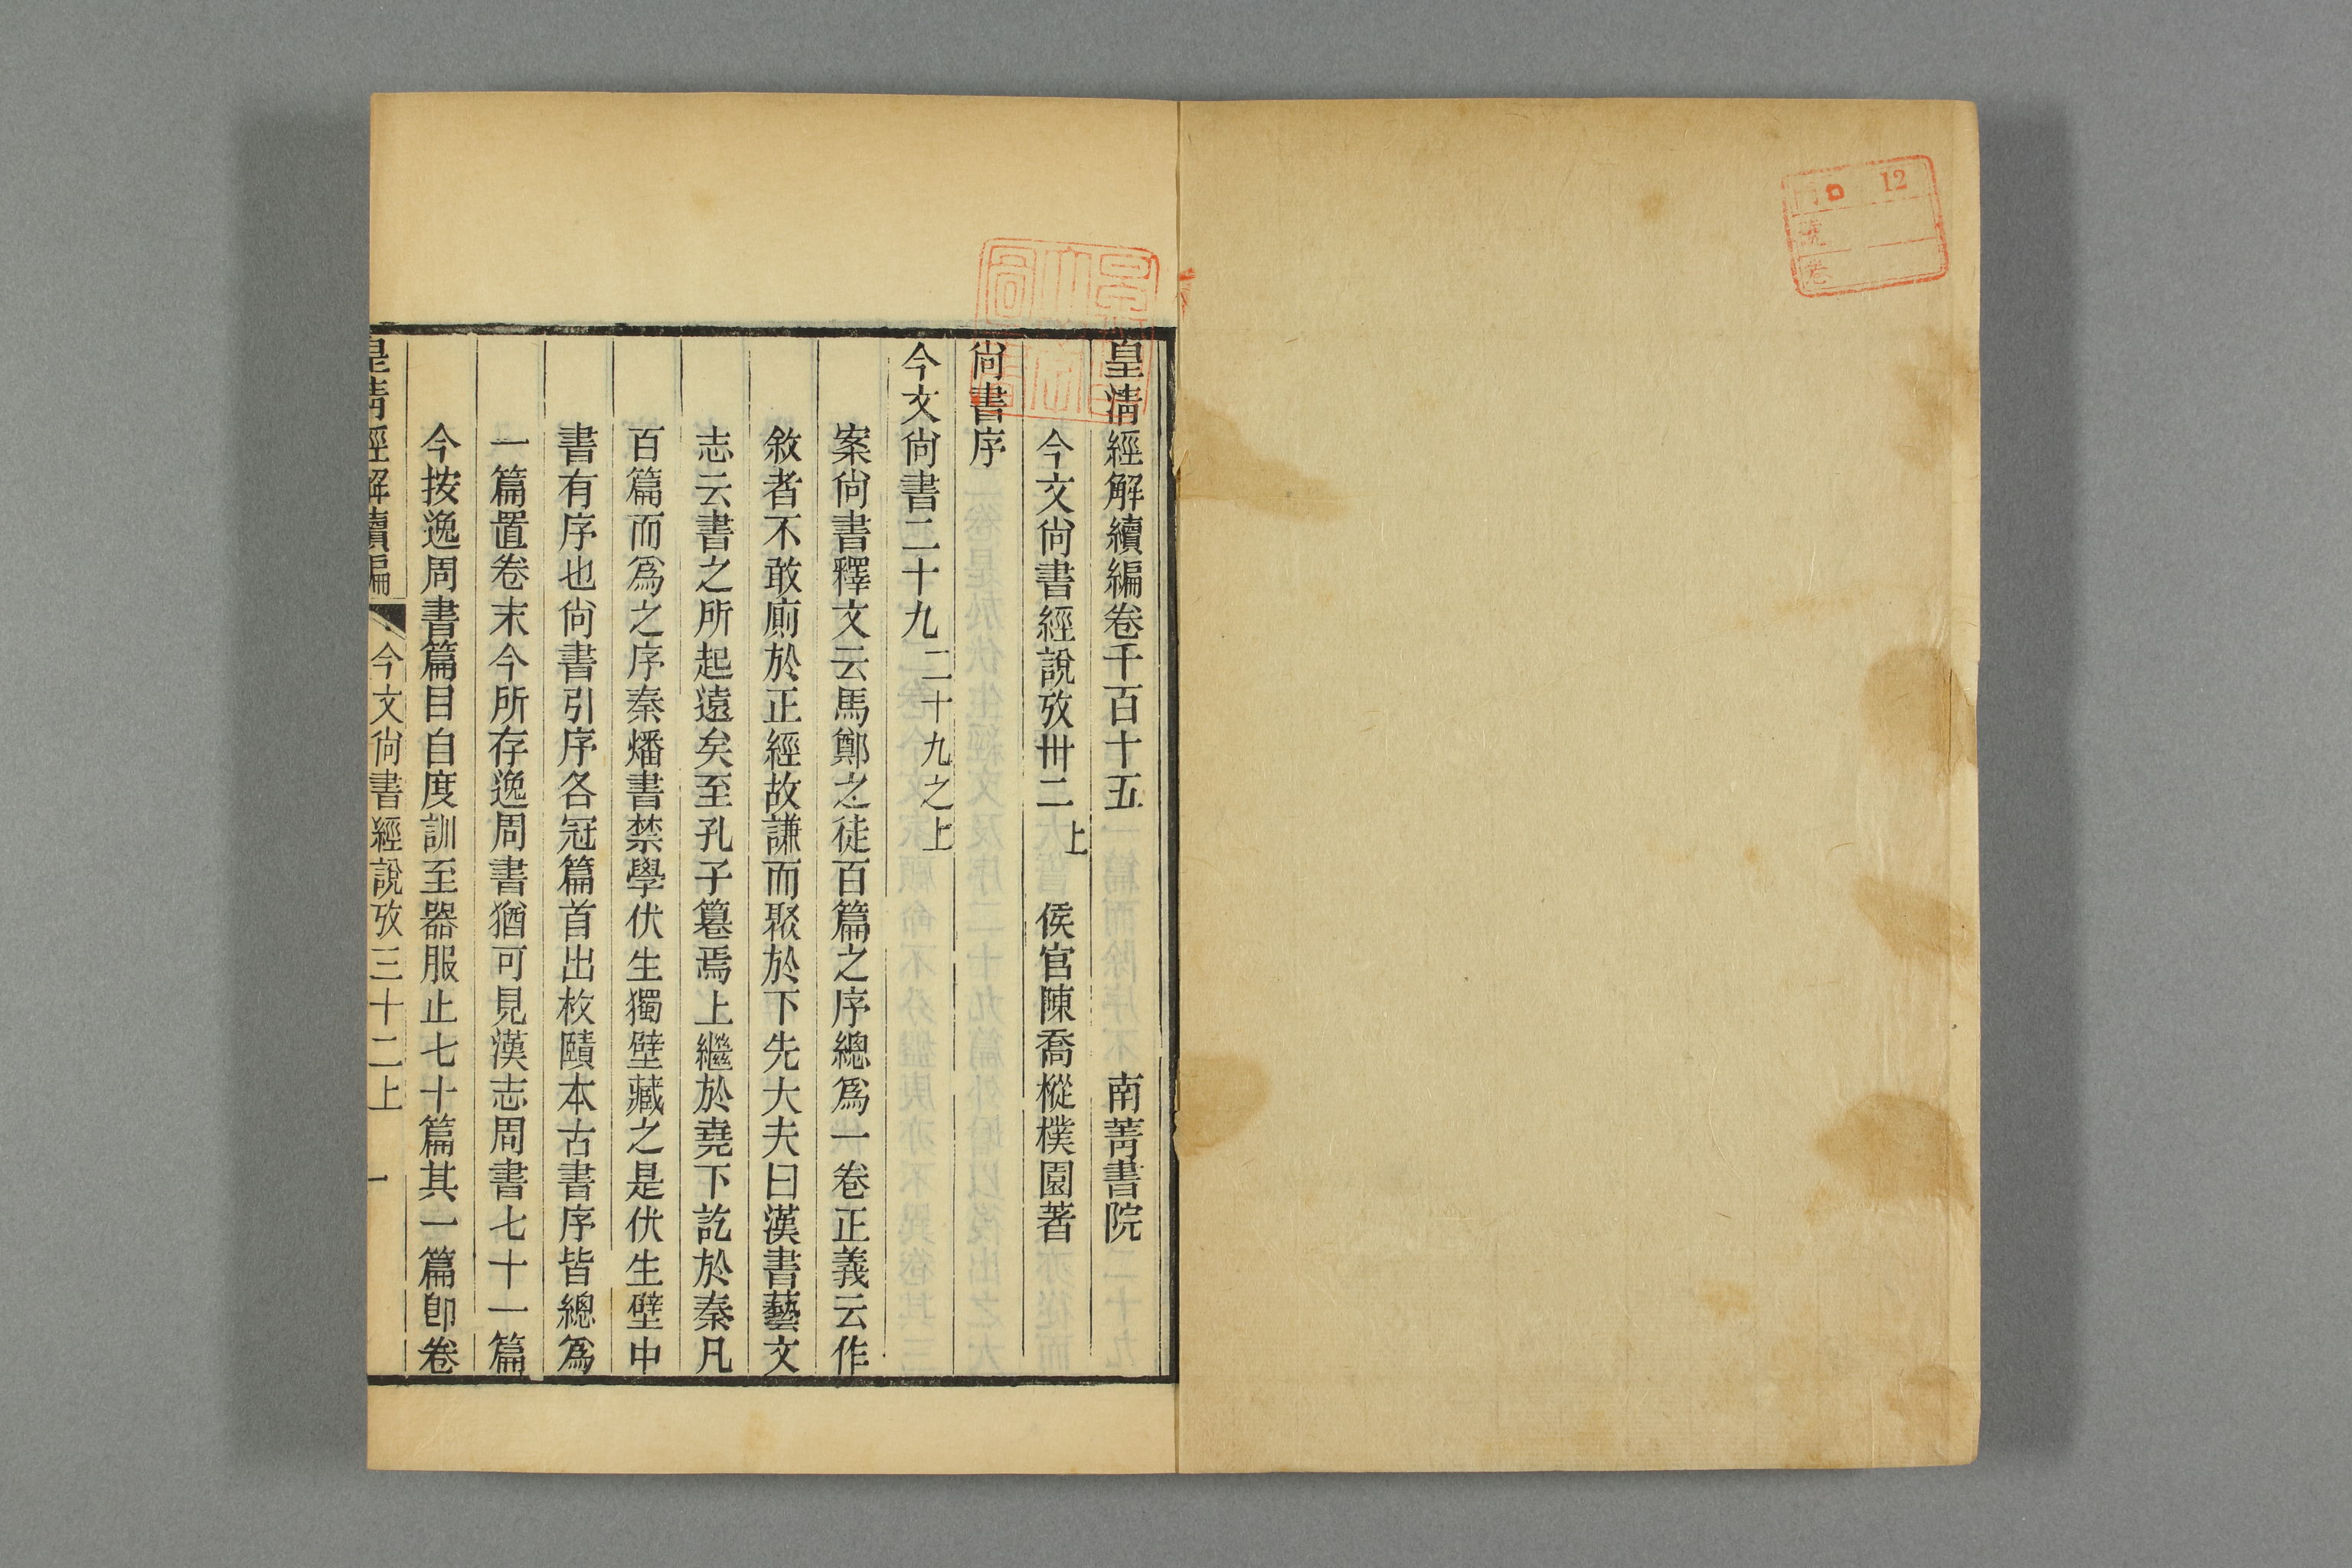 12
卷
皇清經解續編卷千百十五 南菁書院
今文尙書經說攷卅二上 侯官陳喬樅樸園著
尙書序
今文尙書二十九二十九之上
案尙書釋文云馬鄭之徒百篇之序總爲一卷正義云作
敘者不敢廁於正經故謙而聚於下先大夫曰漢書藝文
志云書之所起遠矣至孔子篹焉上繼於堯下訖於秦凡
百篇而爲之序秦燔書禁學伏生獨壁藏之是伏生壁中
書有序也尙書引序各冠篇首出枚賾本古書序皆總爲
一篇置卷末今所存逸周書猶可見漢志周書七十一篇
今按逸周書篇目自度訓至器服止七十篇其一篇卽卷
皇清經解續編 今文尙書經說攷三十二上 一